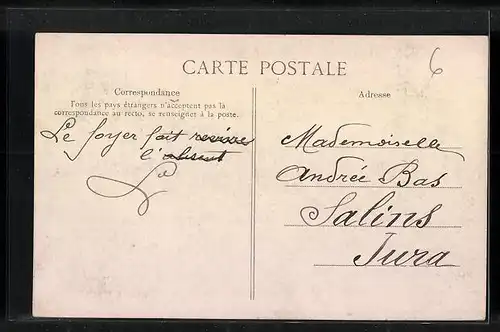 6
CARTE POSTALE
Correspondance
Tous les pays étrangers n'acceptent pas là
correspondance au recto, se renseigner à la poste.
Le foyer fait revivre
l'absent
Adresse
Mademoiselle
Andrée Bas
Salins
Jura